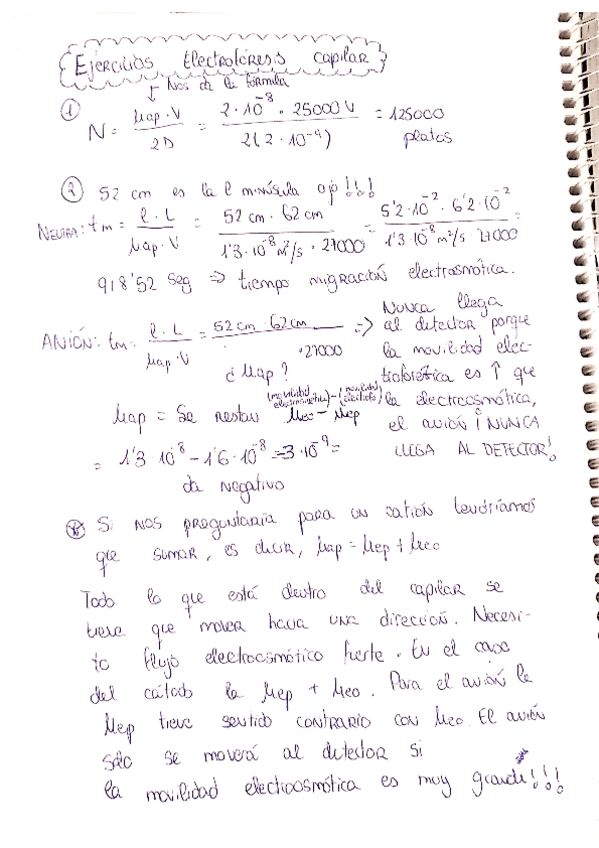 Ejercicios Electroforesis capilar
↓ Nos da la fórmula
① N = μap · V / 2D = 2 · 10⁻⁸ · 25000 V / 2(2 · 10⁻⁹) = 125000 platos
② 52 cm es la l minúscula ojo!!!
NEUTRA: tm = l · L / μap · V = 52 cm · 62 cm / 1'3 · 10⁻⁸ m²/s · 27000 = 5'2 · 10⁻² · 6'2 · 10⁻² / 1'3 · 10⁻⁸ m²/s · 27000 =
918'52 seg ⇒ tiempo migración electrosmótica.
ANIÓN: tm = l · L / μap · V = 52 cm · 62 cm / · 27000 ⇒ Nunca llega
¿ μap ?
al detector porque
la movilidad elec-
troforética es ↑ que
la electroosmótica,
el anión ¡NUNCA
LLEGA AL DETECTOR!
μap = Se restan (movilidad electrosmótica) μeo - μep
= 1'3 · 10⁻⁸ - 1'6 · 10⁻⁸ = -3 · 10⁻⁹ =
da negativo
Si nos preguntaria para un catión tendríamos
que sumar, es decir, μap = μep + μeo
Todo lo que está dentro del capilar se
tiene que mover hacia una dirección. Necesi-
to flujo electroosmótico fuerte. En el caso
del cátodo la μep + μeo. Para el anión la
μep tiene sentido contrario con μeo. El anión
sólo se moverá al detector si
la movilidad electroosmótica es muy grande!!!